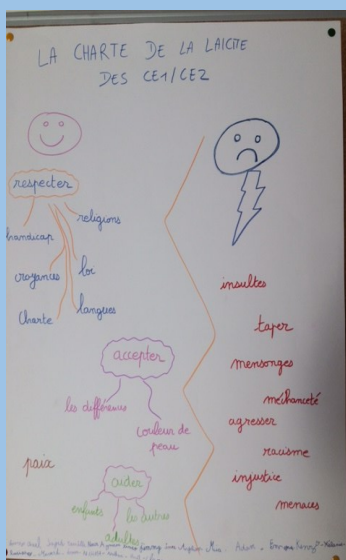 LA CHARTE DE LA LAICITE
DES CE1/CE2
respecter
religions
handicap
croyances
loi
Charte
langues
accepter
les différences
couleur de
peau
paix
aider
enfants
les autres
adultes
insultes
taper
mensonges
méchanceté
agresser
racisme
injustice
menaces